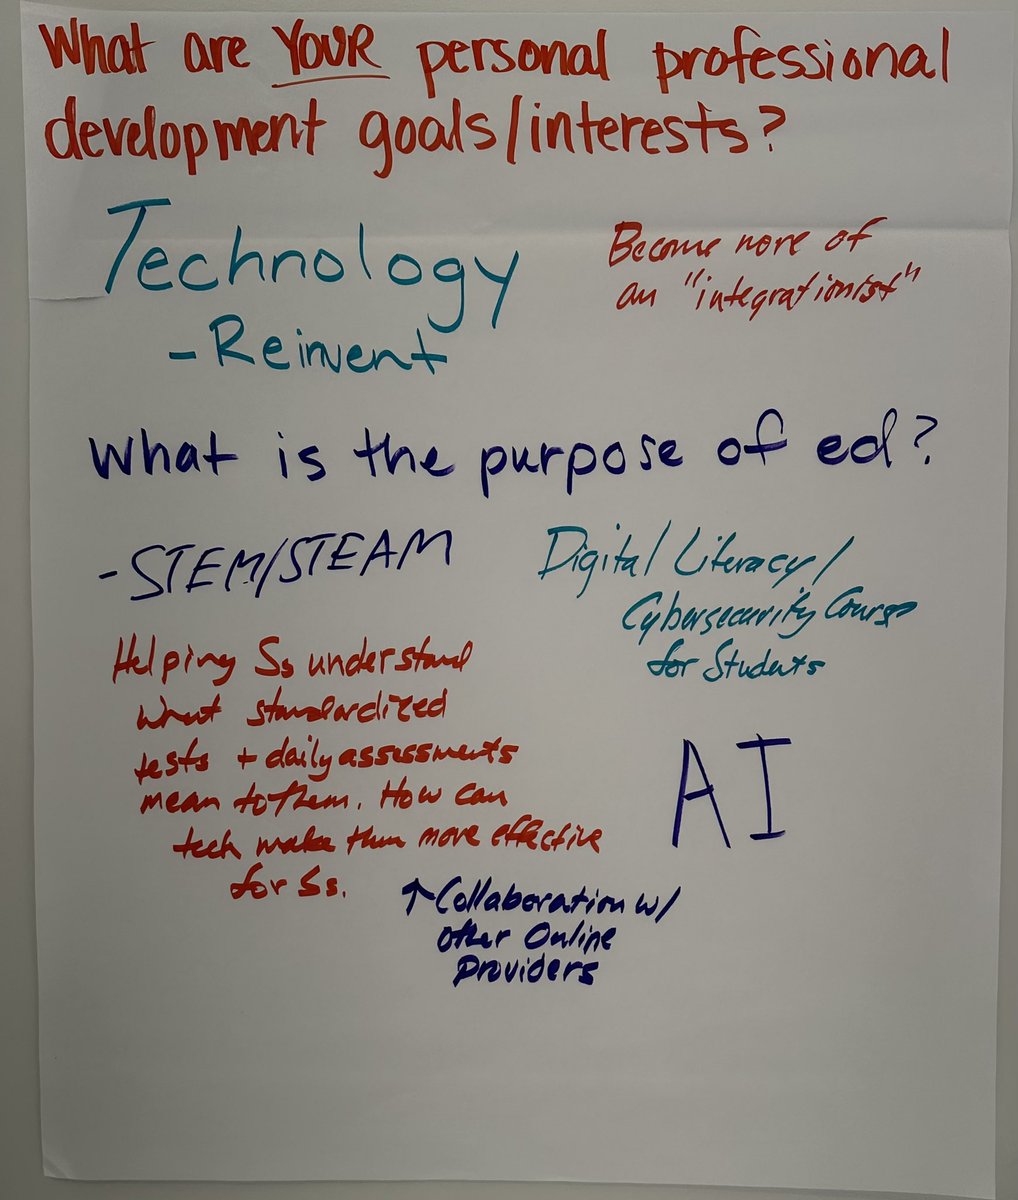 What are YOUR personal professional
development goals/interests?
Technology
- Reinvent
Become more of
an "integrationist"
What is the purpose of ed?
- STEM/STEAM
Digital Literacy/
Cybersecurity Course
for Students
Helping Ss understand
what standardized
tests + daily assessments
mean to them. How can
tech make them more effective
for Ss.
AI
↑ Collaboration w/
other Online
Providers